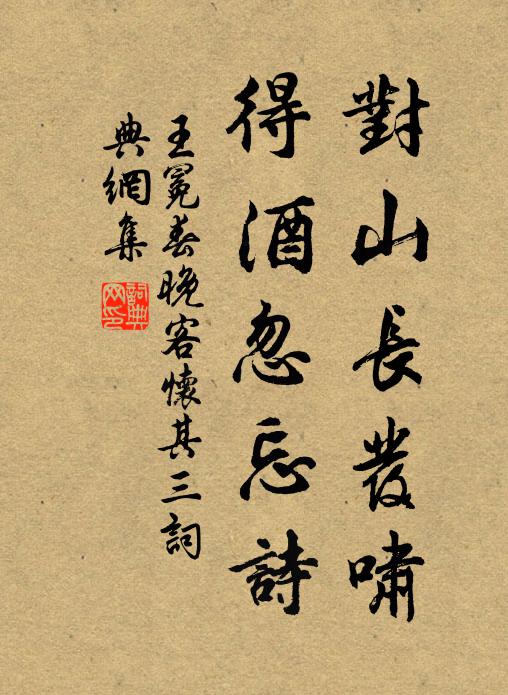 對山長發嘯
得酒忽忘詩
王冕春晚客懷其三詞
典網集
詞典
网印